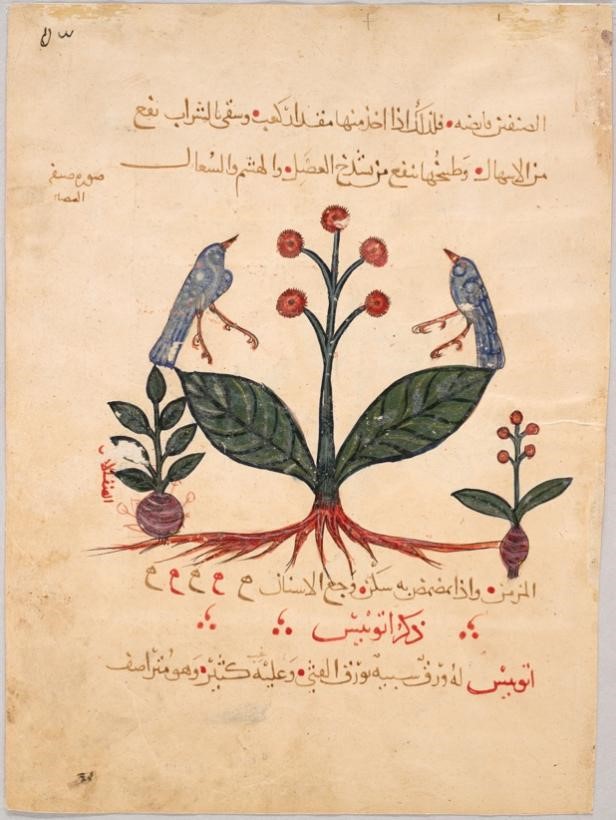 الصنفين قابضه فلذلك اذا اخذ منها مقدار كعب وسقي بالشراب نفع
من الاسهال وطبخها ينفع من شدخ العضل والهشم والسعال
صوره صنفي
المزمن واذا تمضمض به سكن وجع الاسنان
ذكر اتوبيس
اتوبيس له ورق شبيه بورق القثى وعليه كثير وهو متراصف